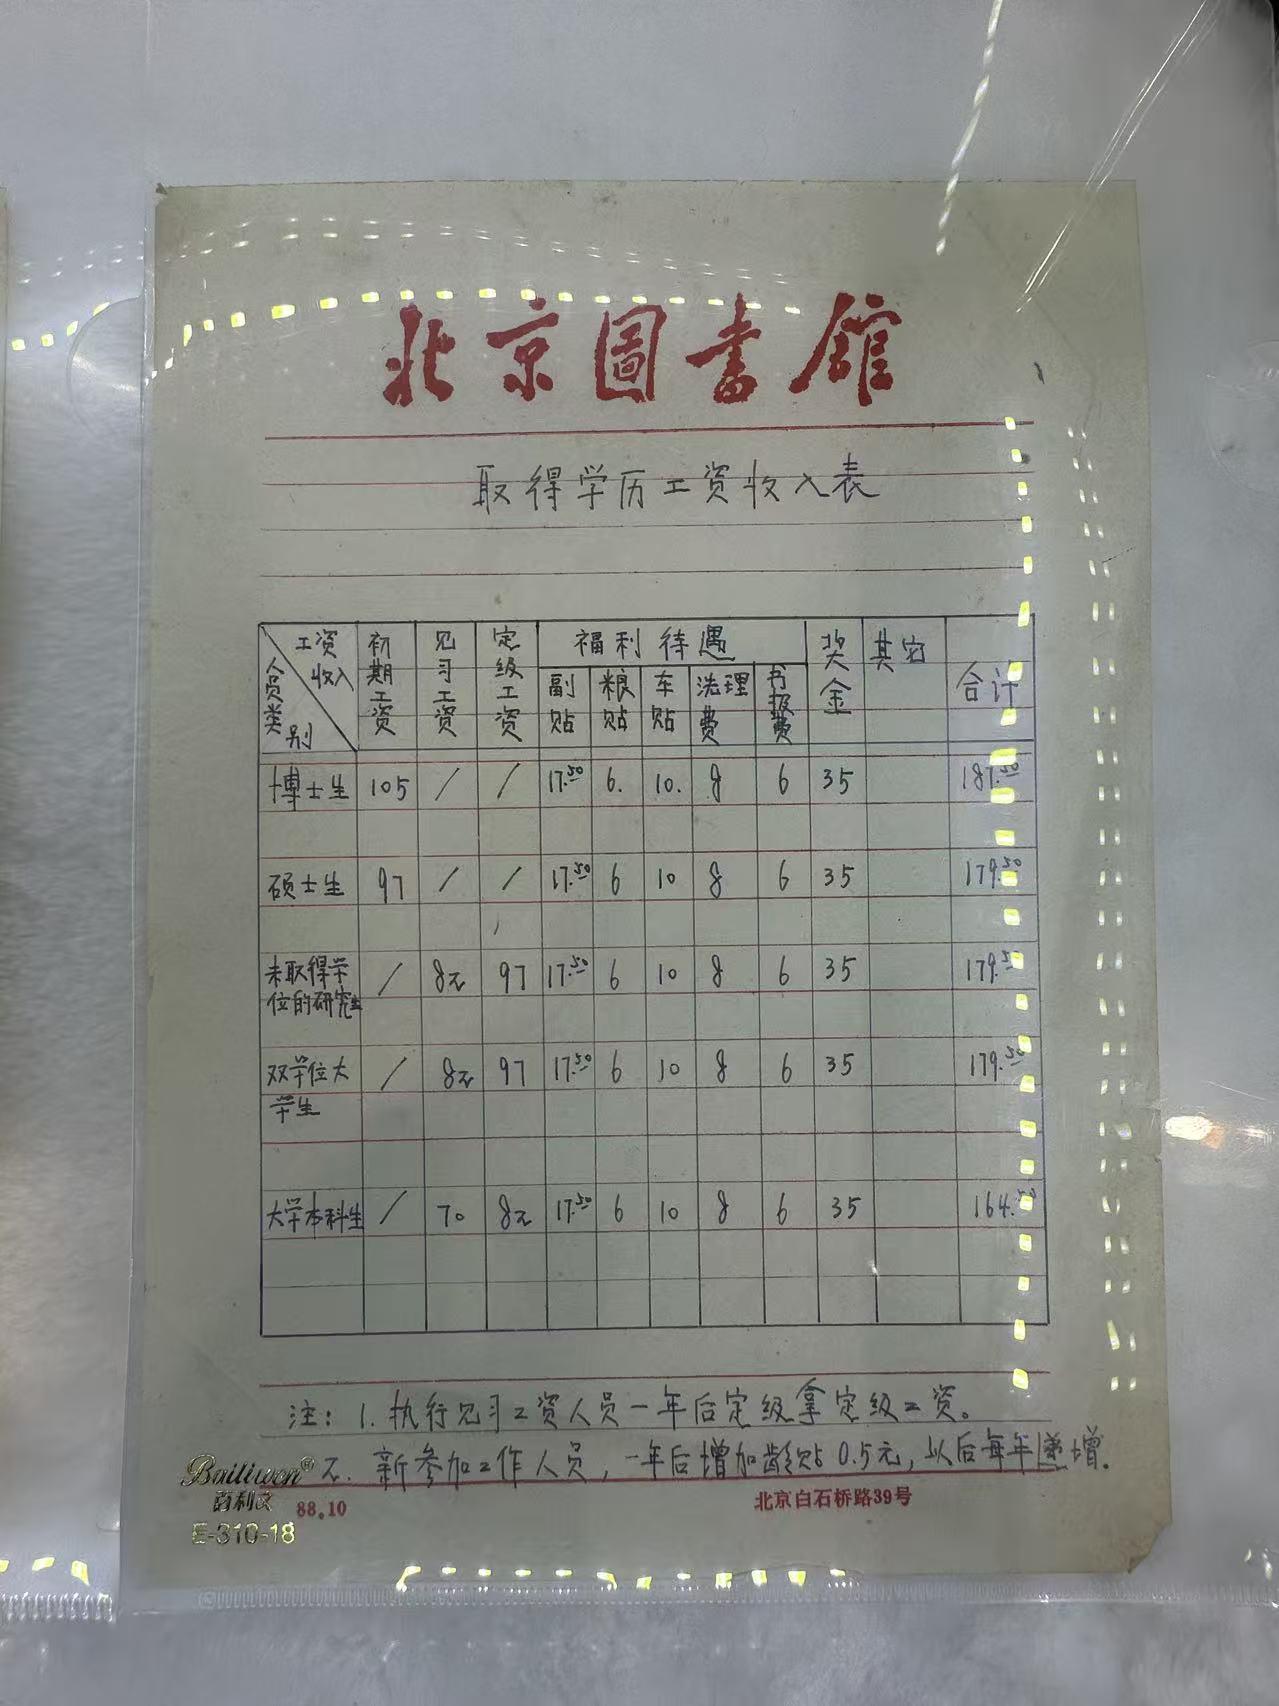 北京圖書館
取得学历工资收入表
工资收入 人员类别 初期工资 见习工资 定级工资 福利待遇 奖金 其它 合计
副贴 粮贴 车贴 洗理费 书报费
博士生 105 / / 17.50 6. 10. 8 6 35 187.50
硕士生 97 / / 17.50 6 10 8 6 35 179.50
未取得学位的研究生 / 8元 97 17.50 6 10 8 6 35 179.50
双学位大学生 / 8元 97 17.50 6 10 8 6 35 179.50
大学本科生 / 70 8元 17.50 6 10 8 6 35 164.50
注：1. 执行见习工资人员一年后定级拿定级工资。
2. 新参加工作人员，一年后增加龄贴0.5元，以后每年递增.
Bailiwen®
百利文 88.10 北京白石桥路39号
E-310-18